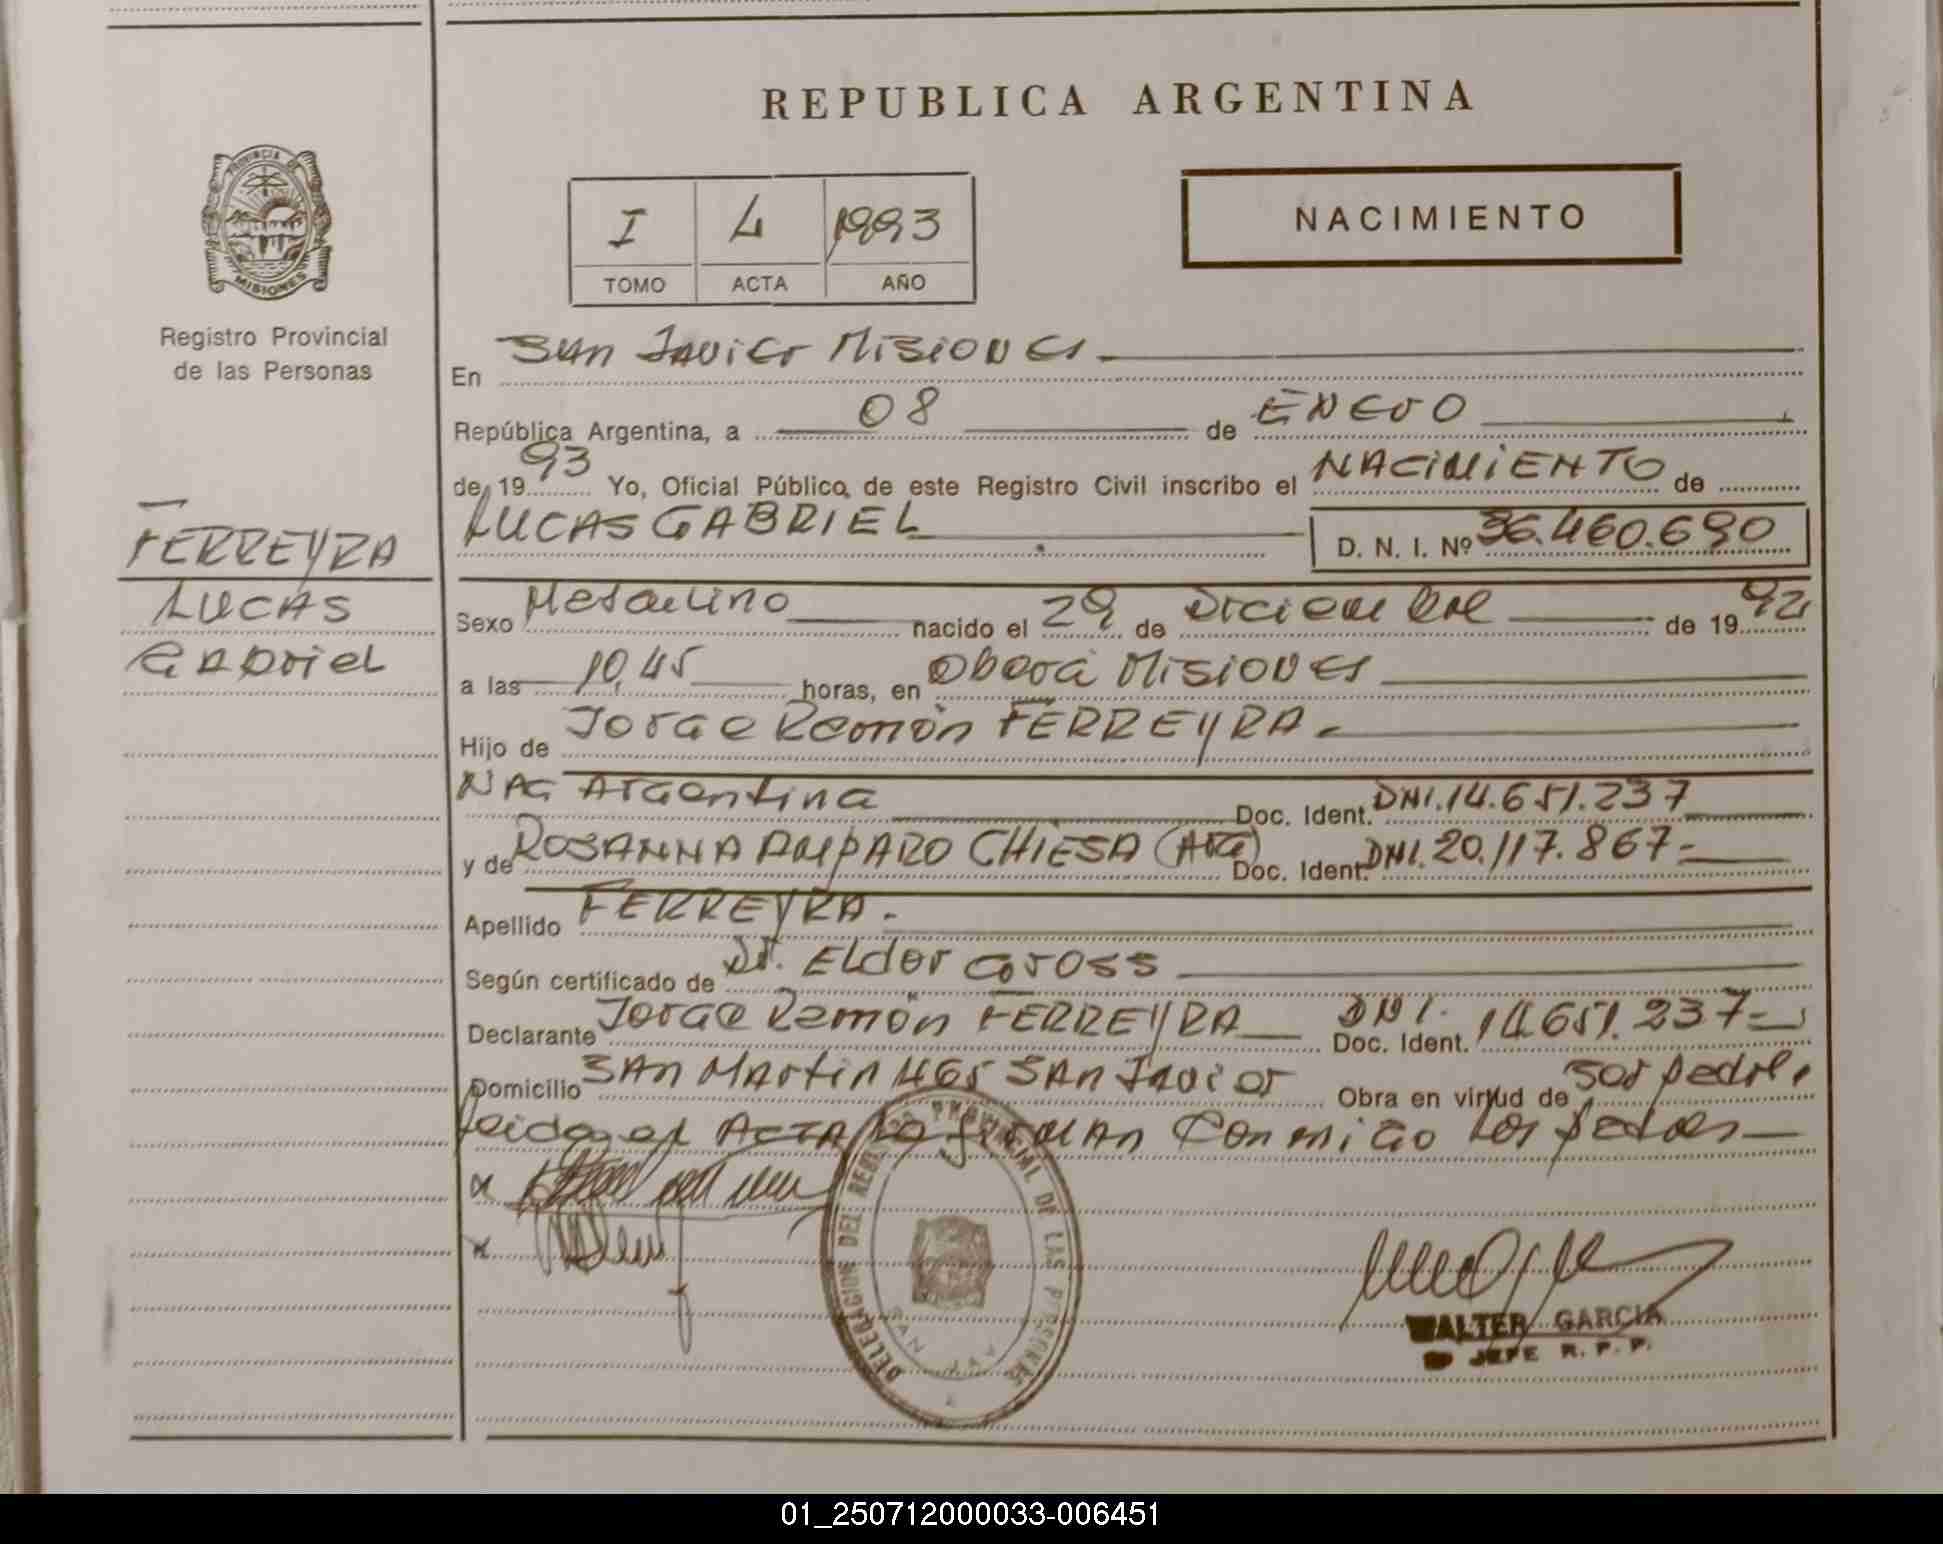 REPUBLICA ARGENTINA
PROVINCIA DE
MISIONES
Registro Provincial
de las Personas
I 4 1993
TOMO ACTA AÑO
NACIMIENTO
En San Javier Misiones
República Argentina, a 08 de ENERO
de 1993 Yo, Oficial Público, de este Registro Civil inscribo el NACIMIENTO de
LUCAS GABRIEL D. N. I. Nº 36.460.690
FERREYRA
LUCAS
Gabriel
Sexo Masculino nacido el 29 de Diciembre de 1992
a las 10,45 horas, en Oberá Misiones
Hijo de Jorge Ramón FERREYRA.
NAC Argentina Doc. Ident. DNI.14.651.237
y de ROSANNA AMPARO CHIESA (Arg) Doc. Ident. DNI.20.117.867-
Apellido FERREYRA.-
Según certificado de Dr. Eldor Gross
Declarante Jorge Ramón FERREYRA Doc. Ident. DNI. 14.651.237-
Domicilio SAN Martin 465 SAN Javier Obra en virtud de
Leida el ACTA la firman Conmigo los padres
DELEGACION DEL REGISTRO PROVINCIAL DE LAS PERSONAS
SAN JAV
WALTER GARCIA
JEFE R. P. P.
01_250712000033-006451